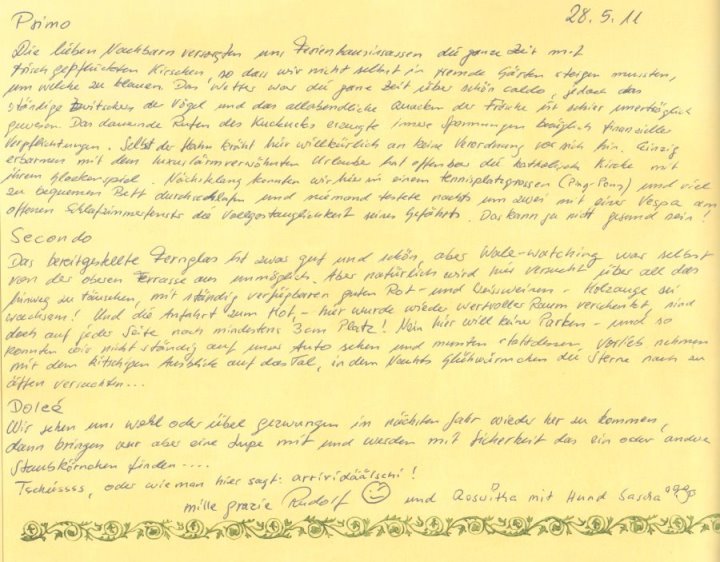 Primo
28.5.11
Die lieben Nachbarn versorgten uns Ferienhausinsassen die ganze Zeit mit
frisch gepflückten Kirschen, so dass wir nicht selbst in fremde Gärten steigen mussten,
um welche zu klauen. Das Wetter war die ganze Zeit über schön caldo, jedoch das
ständige Zwitschern der Vögel und das allabendliche Quacken der Frösche ist schier unerträglich
gewesen. Das dauernde Rufen des Kuckucks erzeugte innere Spannungen bezüglich finanzieller
Verpflichtungen. Selbst der Hahn kräht hier willkürlich an keine Verordnung vor sich hin. Einzig
erbarmen mit dem lärmverwöhnten Urlauber hat offenbar die katholische Kirche mit
ihrem Glockenspiel. Nächtelang konnten wir hier in einem tennisplatzgrossen (Ping-Pong) und viel
zu bequemen Bett durchschlafen und niemand testete nachts um zwei mit einer Vespa am
offenen Schlafzimmerfenster die Vollgastauglichkeit seines Gefährts. Das kann ja nicht gesund sein!
Secondo
Das bereitgestellte Fernglas ist zwar gut und schön, aber Wale-watching war selbst
von der oberen Terrasse aus unmöglich. Aber natürlich wird hier versucht über all das
hinweg zu täuschen, mit ständig verfügbaren guten Rot- und Weissweinen - Holzauge sei
wachsam! Und die Anfahrt zum Hof, - hier wurde wieder wertvoller Raum verschenkt, sind
doch auf jeder Seite noch mindestens 3cm Platz! Nein hier will keine Parken - und so
konnten wir nicht ständig auf unser Auto sehen und mussten stattdessen, vorlieb nehmen
mit dem kitschigen Ausblick auf das Tal, in dem Nachts Glühwürmchen die Sterne nach zu
äffen versuchten...
Dolcé
Wir sehen uns wohl oder übel gezwungen im nächsten Jahr wieder her zu kommen,
dann bringen wir aber eine Lupe mit und werden mit Sicherheit das ein oder andere
Staubkörnchen finden....
Tschüssss, oder wie man hier sagt: arrividäälschi!
mille grazie Rudolf und Roswitha mit Hund Sascha